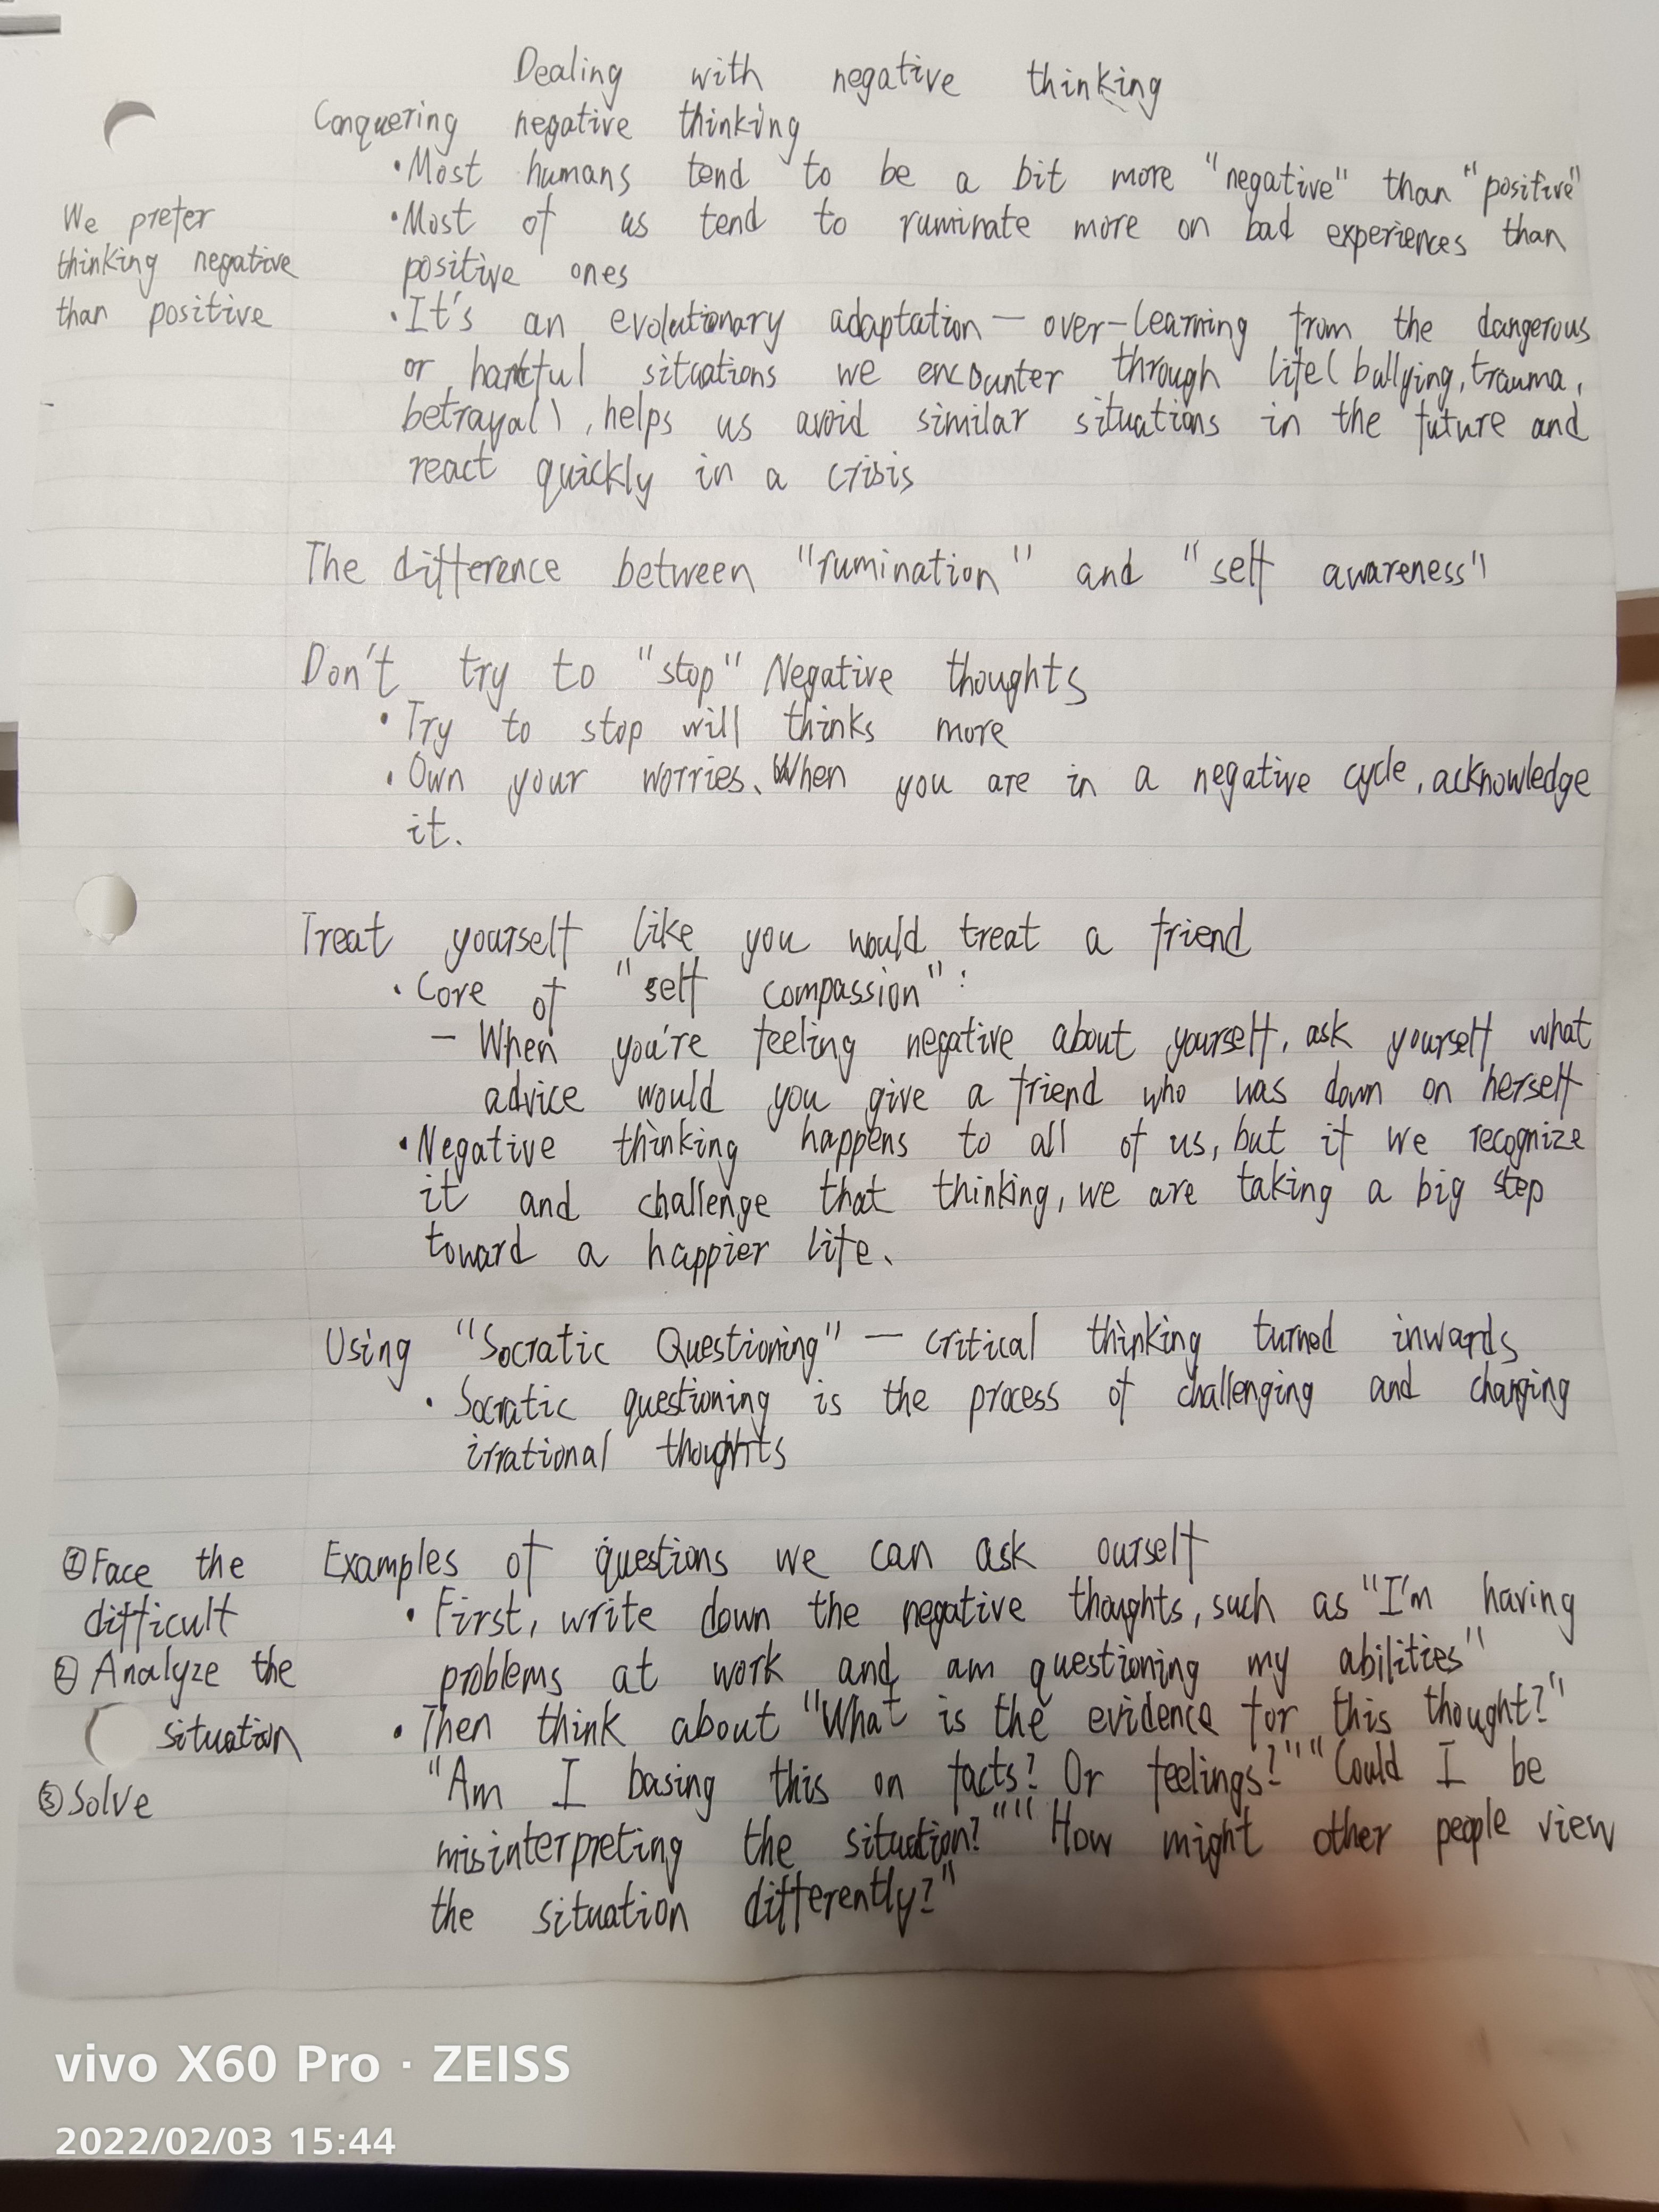 Dealing with negative thinking
Conquering negative thinking
•Most humans tend to be a bit more "negative" than "positive"
We prefer
thinking negative
than positive
•Most of us tend to ruminate more on bad experiences than
positive ones
•It's an evolutionary adaptation — over-learning from the dangerous
or hurtful situations we encounter through life (bullying, trauma,
betrayal), helps us avoid similar situations in the future and
react quickly in a crisis
The difference between "rumination" and "self awareness"
Don't try to "stop" Negative thoughts
•Try to stop will thinks more
•Own your worries. When you are in a negative cycle, acknowledge
it.
Treat yourself like you would treat a friend
•Core of "self compassion":
– When you're feeling negative about yourself, ask yourself what
advice would you give a friend who was down on herself
•Negative thinking happens to all of us, but if we recognize
it and challenge that thinking, we are taking a big step
toward a happier life.
Using "Socratic Questioning" — critical thinking turned inwards
•Socratic questioning is the process of challenging and changing
irrational thoughts
①Face the
difficult
②Analyze the
situation
③Solve
Examples of questions we can ask ourself
•First, write down the negative thoughts, such as "I'm having
problems at work and am questioning my abilities"
•Then think about "What is the evidence for this thought?"
"Am I basing this on facts? Or feelings?" "Could I be
misinterpreting the situation?" "How might other people view
the situation differently?"
vivo X60 Pro · ZEISS
2022/02/03 15:44